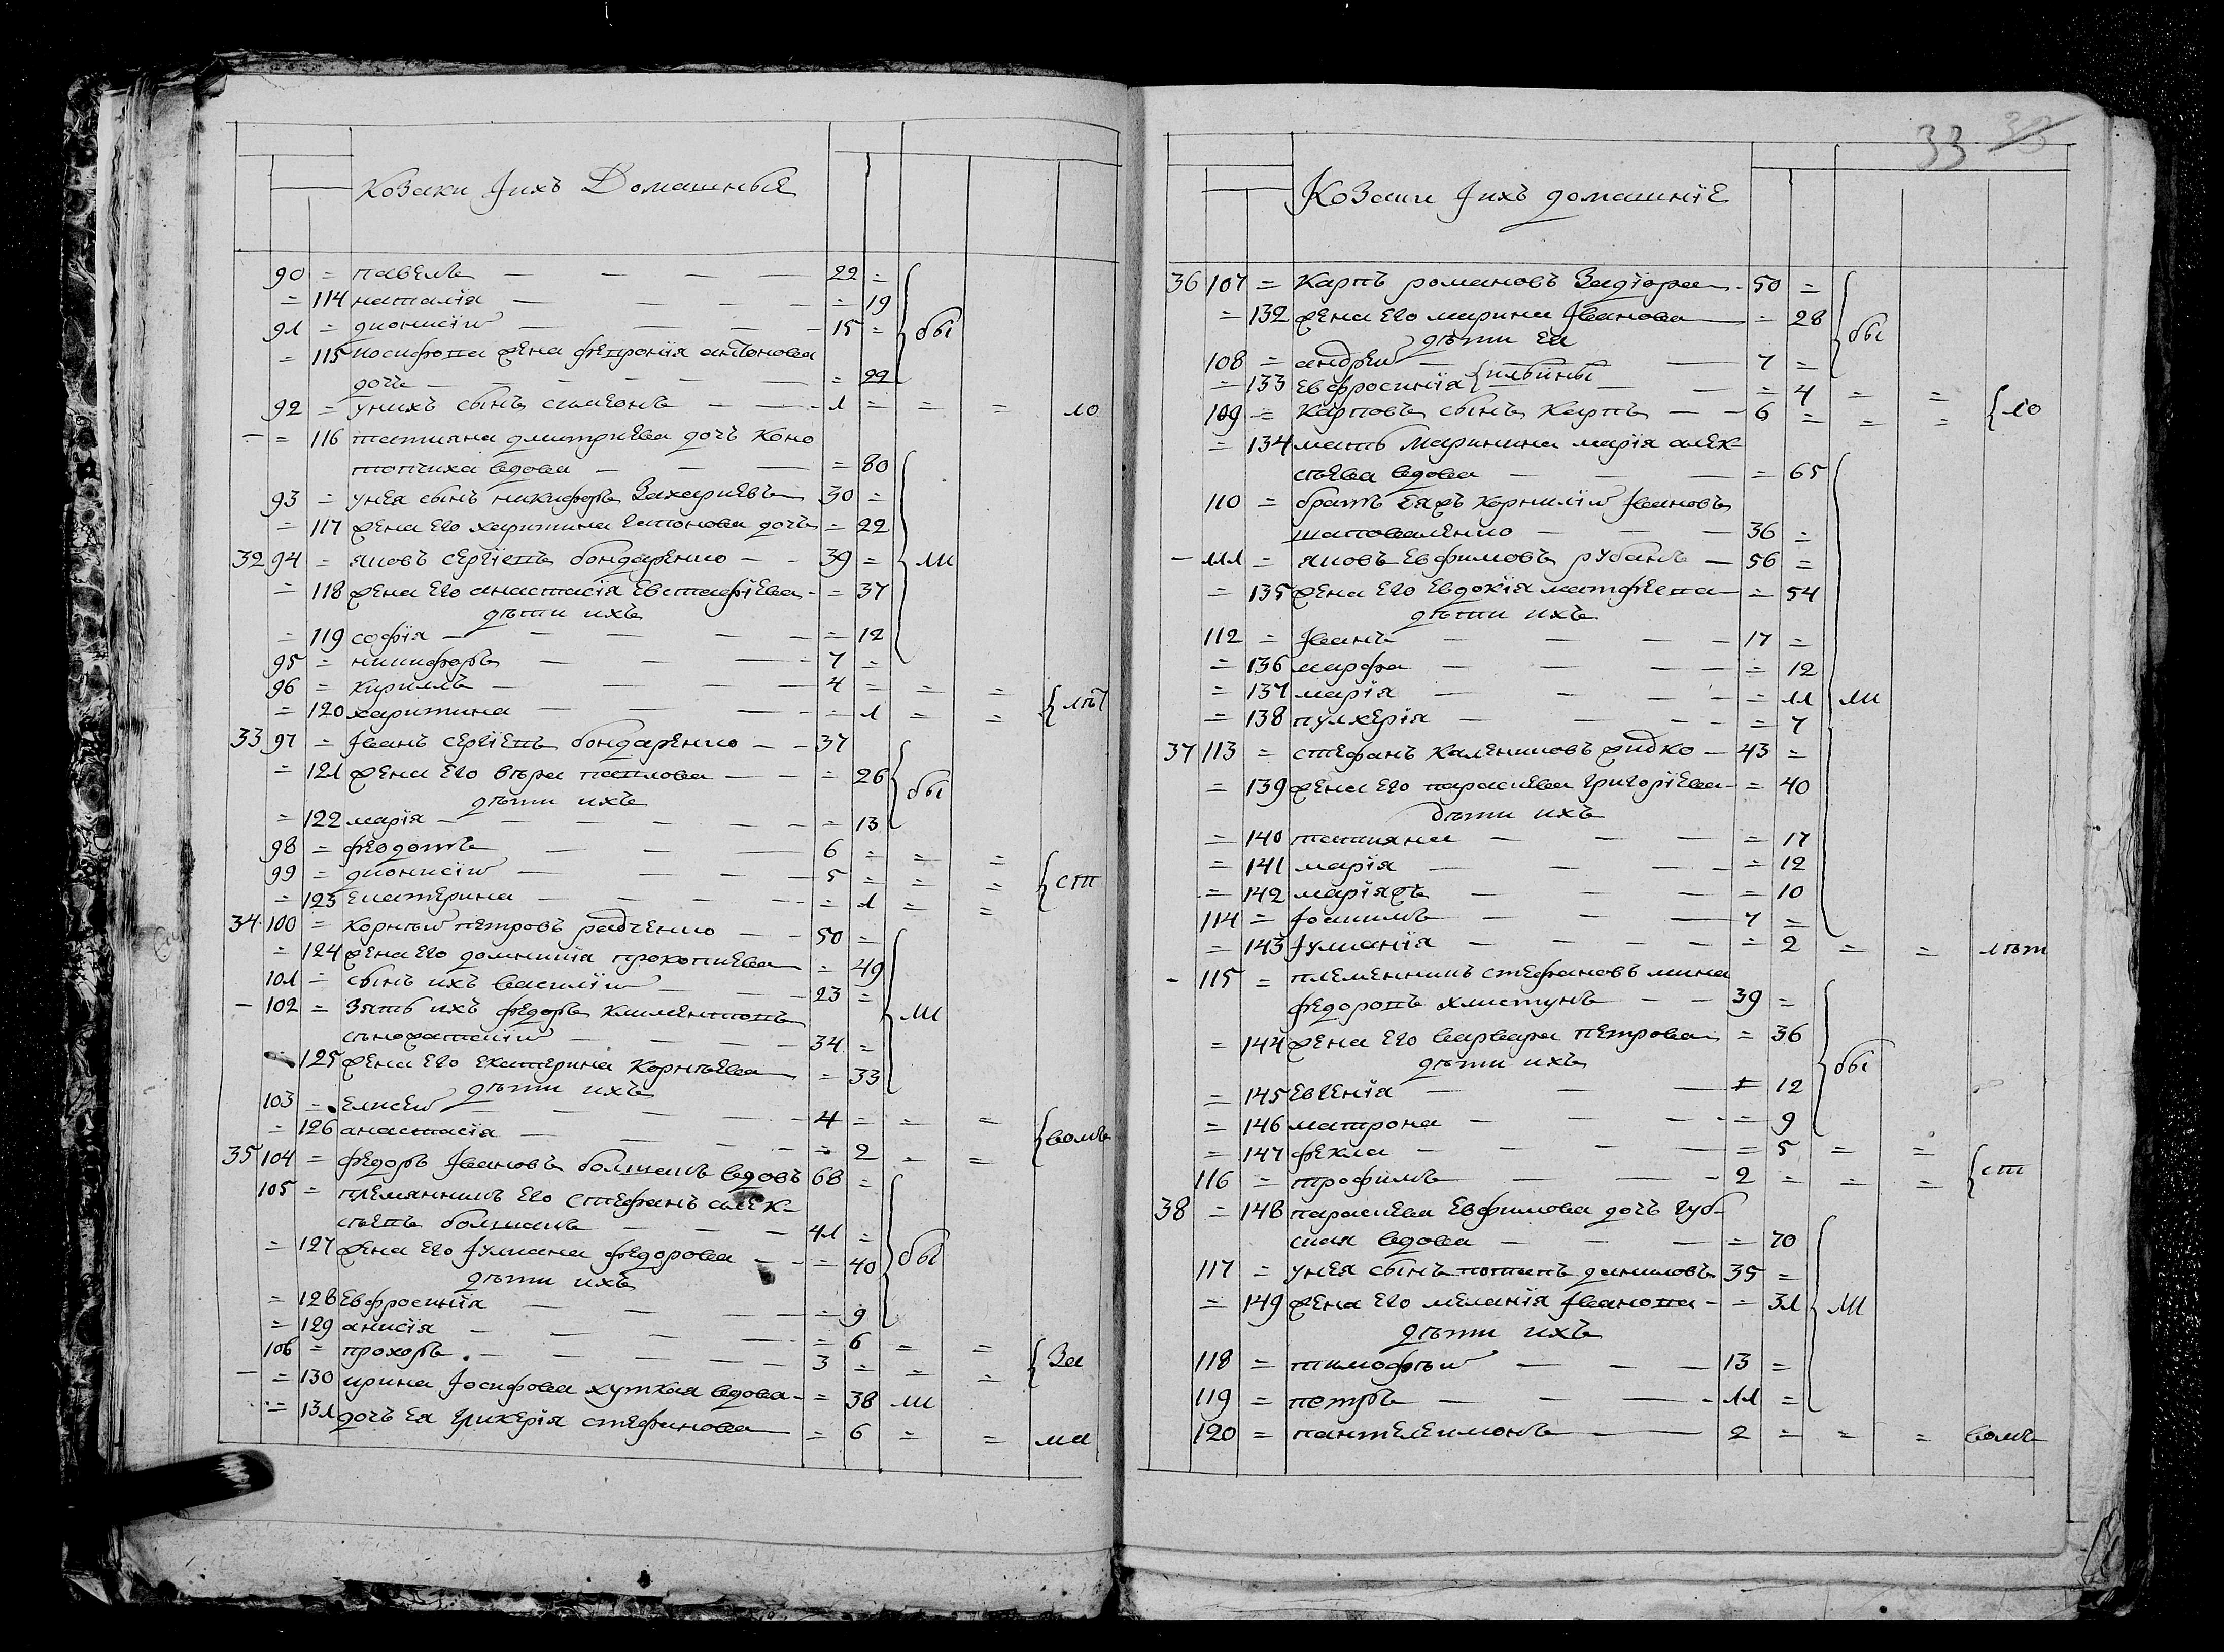 Козаки Іихъ Домашныя
90 = павелъ — — — — 22 =
= 114 наталія — — — — = 19
91 = дионисій — — — — 15 = обы
= 115 иосифова жена февронія антонова
дочь — — — — = 22
92 = унихъ сынъ симеонъ — — 1 = = = ло
— = 116 татияна дмитриева дочь коно
топчиха вдова — — — = 80
93 = унея сынъ никифоръ Захариевъ 30 =
= 117 жена его харитина антонова дочь = 22
32 94 = яковъ сергіевъ бондаренко — — 39 = ли
= 118 жена его анастасія Евстафіева — = 37
дѣти ихъ
= 119 софія — — — — = 12
95 = никифоръ — — — 7 =
96 = кириллъ — — — — 4 = = = лѣт
= 120 харитина — — — — = 1 = =
33 97 = Іванъ сергіевъ бондаренко — — 37
= 121 жена его вѣра павлова — — = 26 обы
дѣти ихъ
= 122 марія — — — — = 13
98 = феодотъ — — — 6 = = =
99 = дионисій — — — — 5 = = = ст
= 123 Екатерина — — — = 1 = =
34 100 = корнѣй петровъ радченко — — 50 =
= 124 жена его домникія прокопиева = 49
101 = сынъ ихъ василій — — 23 =
— 102 = Зять ихъ федоръ климентовъ ли
сѣножатскій — — — 34 =
= 125 жена его екатерина корнѣева = 33
дѣти ихъ
103 = елисей — — — — 4 = = =
= 126 анастасія — — — = 2 = = вомъ
35 104 = федоръ Івановъ болшакъ вдовъ 68 =
105 = племянникъ его стефанъ алек-
сѣевъ болшакъ — — — 41 =
= 127 жена его Іулиана федорова — — = 40 обы
дѣти ихъ
= 128 Евфросинія — — — = 9
= 129 анисія — — — — = 6 = =
106 = прохоръ — — — — 3 = = = За
— = 130 ирина Іосифова хуткая вдова — = 38 ли
= 131 дочь ея гликерія стефанова = 6 = = ма
33 33
Козаки Іихъ домашніе
36 107 = Карпъ романовъ Задіора — 50 =
= 132 жена его марина Іванова — = 28
дѣти еи обы
108 = андрей — — 7 =
= 133 Евфросинія илвины — = 4 = =
109 = карповъ сынъ карпъ — — 6 = = = ло
= 134 мать Маринина марія алек-
сѣева вдова — — — = 65
110 = братъ еяжъ корнилій Івановъ
шаповаленко — — — 36 =
— 111 = яковъ Евфимовъ рубанъ — 56 =
= 135 жена его Евдокія матфеева — = 54
дѣти ихъ
112 = Іванъ — — — — 17 =
= 136 марфа — — — — = 12
= 137 марія — — — — = 11 ли
= 138 пулхерія — — — — = 7
37 113 = стефанъ калениковъ жидко — 43 =
= 139 жена его параскева григоріева — = 40
дѣти ихъ
= 140 татияна — — — = 17
= 141 марія — — — — = 12
= 142 маріяжъ — — — = 10
114 = Іоакимъ — — — 7 =
= 143 Іулианія — — — — = 2 = = лѣт
— 115 = племенникъ стефановъ мина
федоровъ хлистунъ — — 39 =
= 144 жена его варвара петрова = 36
дѣти ихъ обы
= 145 Евгенія — — — = 12
= 146 матрона — — — = 9
= 147 фекла — — — — = 5 = =
116 = трофимъ — — — 2 = = = ст
38 = 148 параскева Евфимова дочь губ-
ская вдова — — — = 70
117 = унея сынъ потапъ даниловъ 35 =
= 149 жена его меланія Іванова — = 31 ли
дѣти ихъ
118 = тимофѣй — — — 13 =
119 = петръ — — — — 11 =
120 = пантелеимонъ — — 2 = = = вомъ